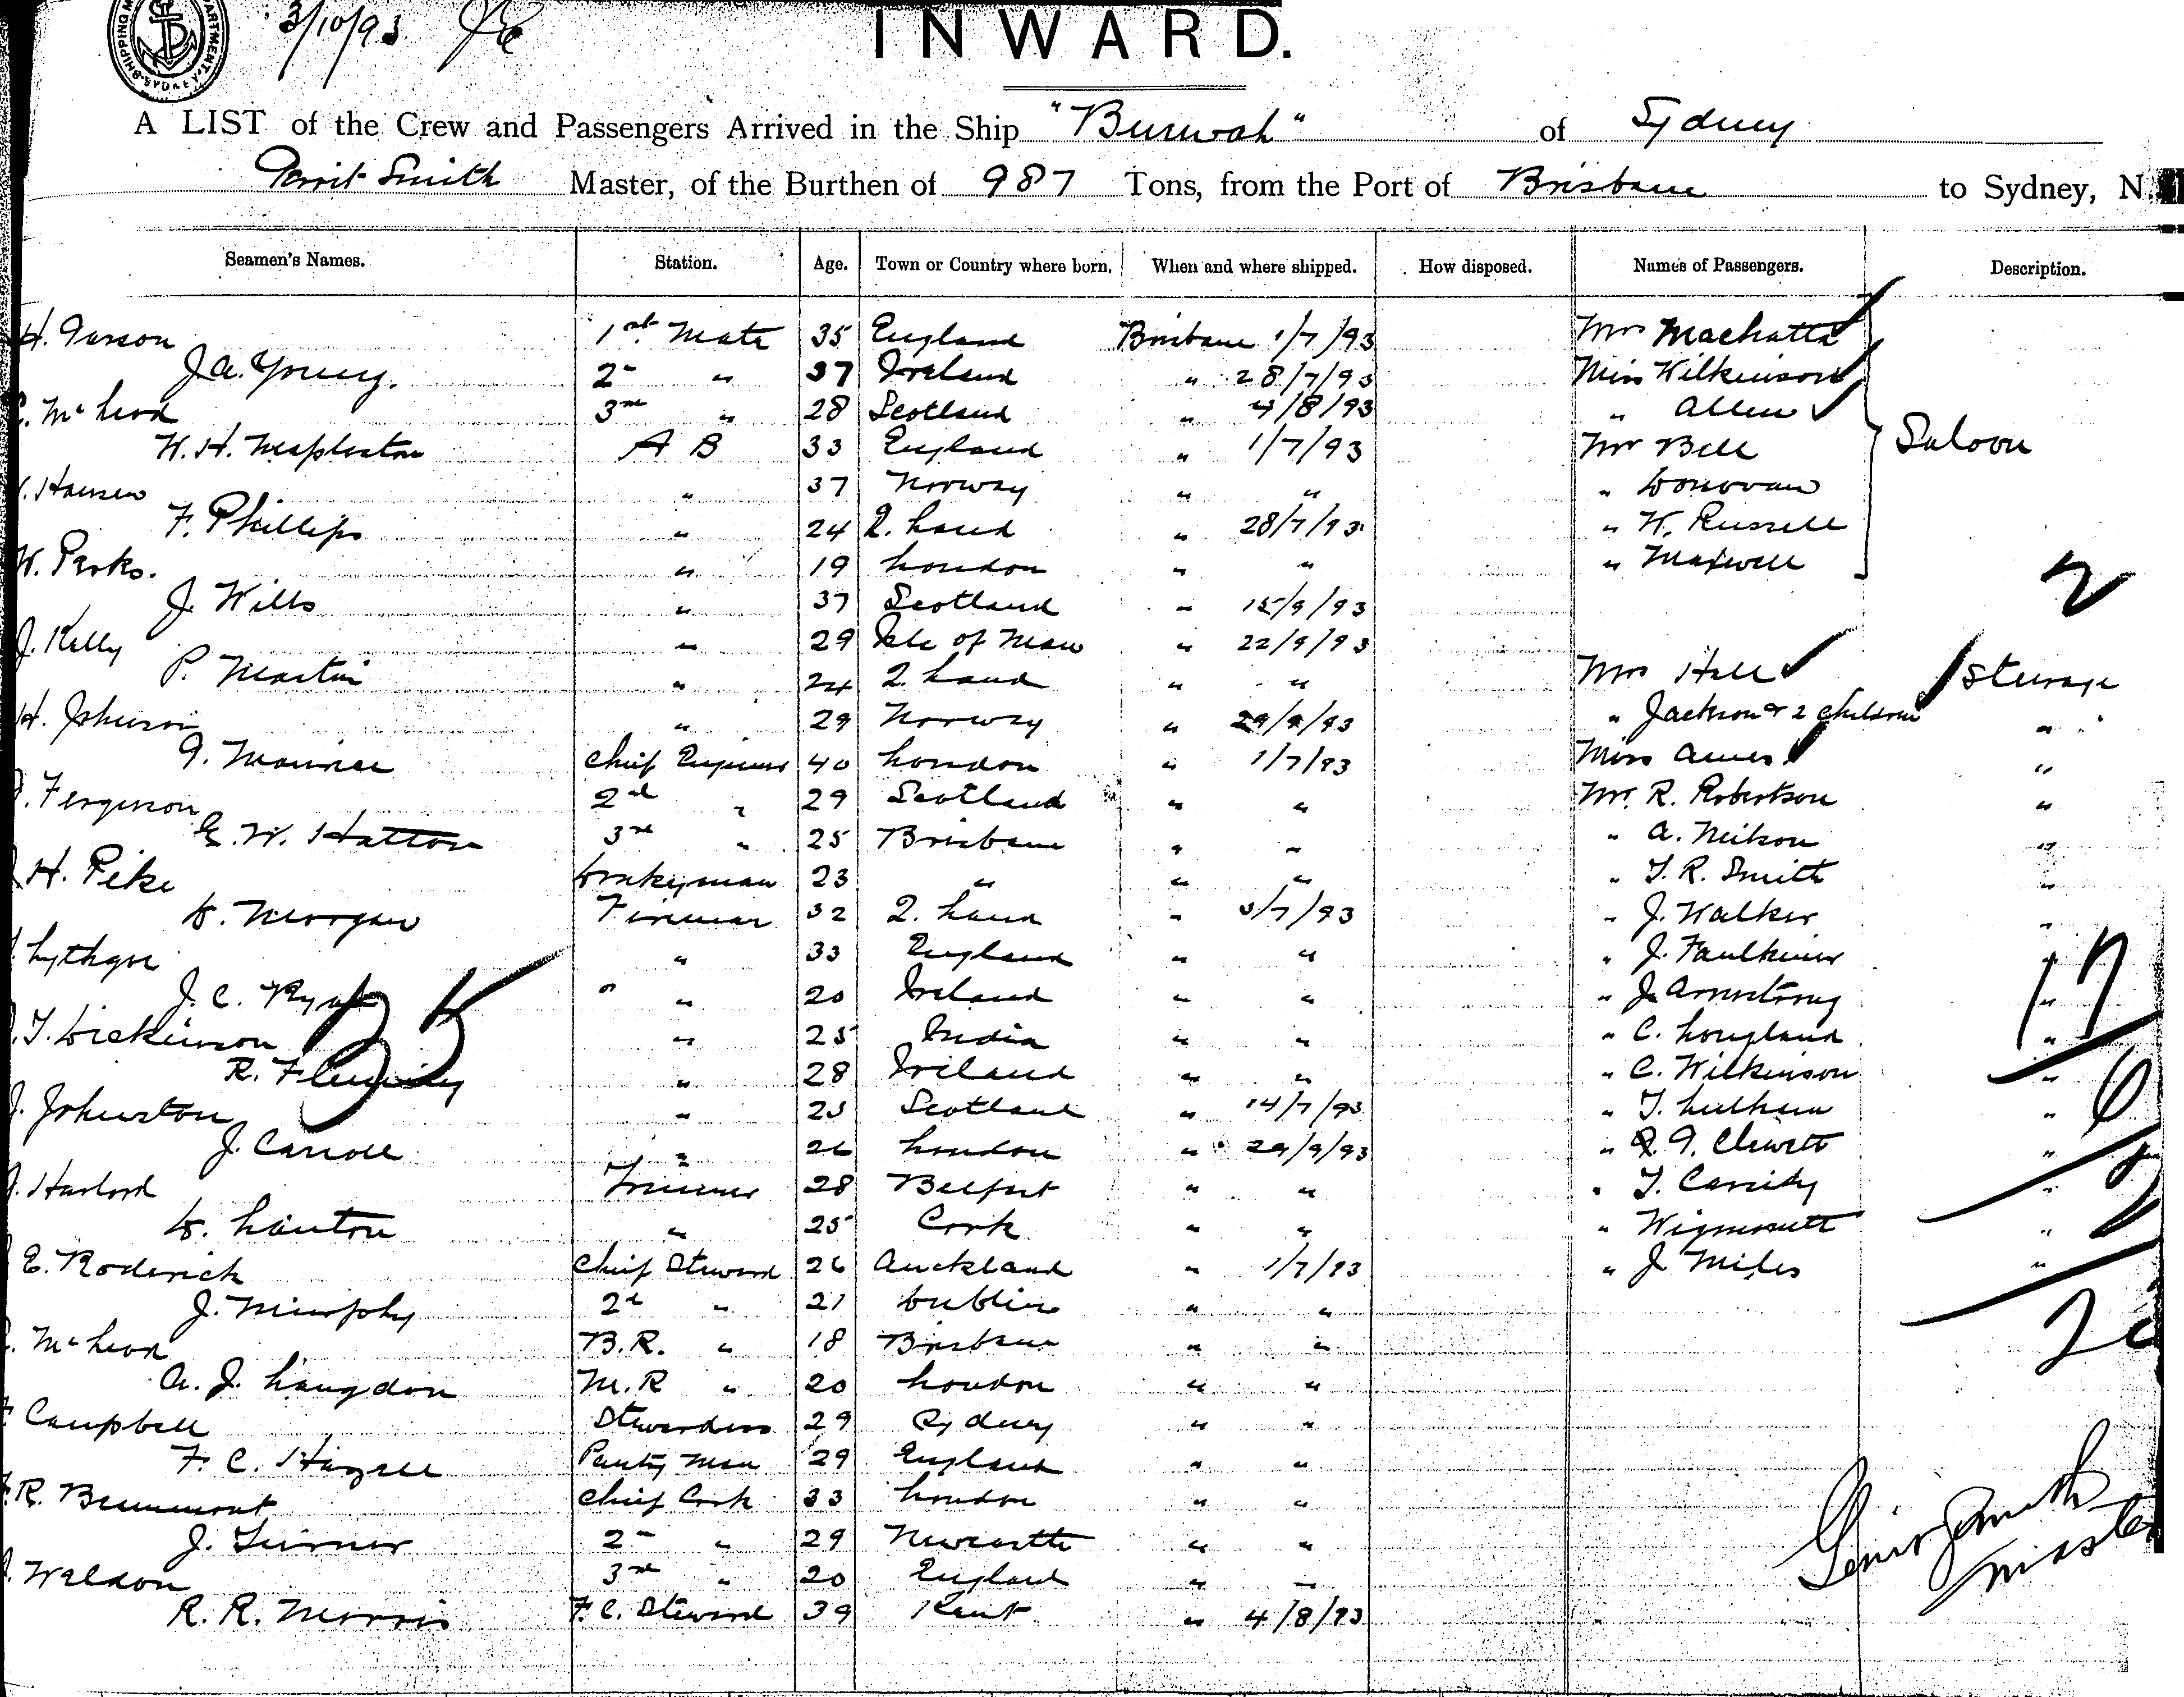 3/10/93
INWARD.
A LIST of the Crew and Passengers Arrived in the Ship "Burwah" of Sydney
Smith Master, of the Burthen of 987 Tons, from the Port of Brisbane to Sydney, N.
Seamen's Names. Station. Age. Town or Country where born. When and where shipped. How disposed. Names of Passengers. Description.
H. 1st Mate 35 England Brisbane 1/7/93 Mrs Machatta
J.A. Young. 2nd " 37 Ireland " 28/7/93 Miss Wilkinson
McLeod 3rd " 28 Scotland " 4/8/93 " Allen
W. H. Mapleston A B 33 England " 1/7/93 Mr Bell Saloon
Hansen " 37 Norway " " " Donovan
F. Phillips " 24 Q. Land " 28/7/93 " W. Russell
W. Parks. " 19 London " " " Maxwell
J. Wills " 37 Scotland " 15/9/93 2
J. Kelly " 29 Isle of Man " 22/9/93
P. Martin " 24 Q. Land " " Mrs Hall Steerage
H. Johnson " 29 Norway " 29/9/93 " Jackson & 2 Children "
Chief Engineer 40 London " 1/7/93 Miss Ames "
Ferguson 2nd " 29 Scotland " " Mr. R. Robertson "
E. W. Hatton 3rd " 25 Brisbane " " " A. Neilson "
H. Pike Donkeyman 23 " " " " T. R. Smith "
D. Morgan Fireman 32 Q. Land " 3/7/93 " J. Walker "
Lythgoe " 33 England " " " J. Faulkiner "
J. C. Ryan " 20 Ireland " " " J. Armstrong " 17
T. Dickinson " 25 India " " " C. Longland "
R. Fleming " 28 Ireland " " " C. Wilkinson "
J. Johnston " 23 Scotland " 14/7/93 " T. "
J. Carroll " 26 London " 29/9/93 " "
Harford Trimmer 28 Belfast " " " T. Cassidy "
D. Lanton " 25 Cork " " " "
E. Roderick Chief Steward 26 Auckland " 1/7/93 " J Miles "
J. Murphy 2d " 21 Dublin " "
McLeod B.R. " 18 Brisbane " "
A. J. Langdon M.R " 20 London " "
Campbell Stewardess 29 Sydney " "
F. C. Pantry Man 29 England " "
R. Beaumont Chief Cook 33 London " "
J. Turner 2nd " 29 Newcastle " "
Weldon 3rd " 20 England " "
R. R. Morris F.C. Steward 39 Kent " 4/8/93
Smith
Master